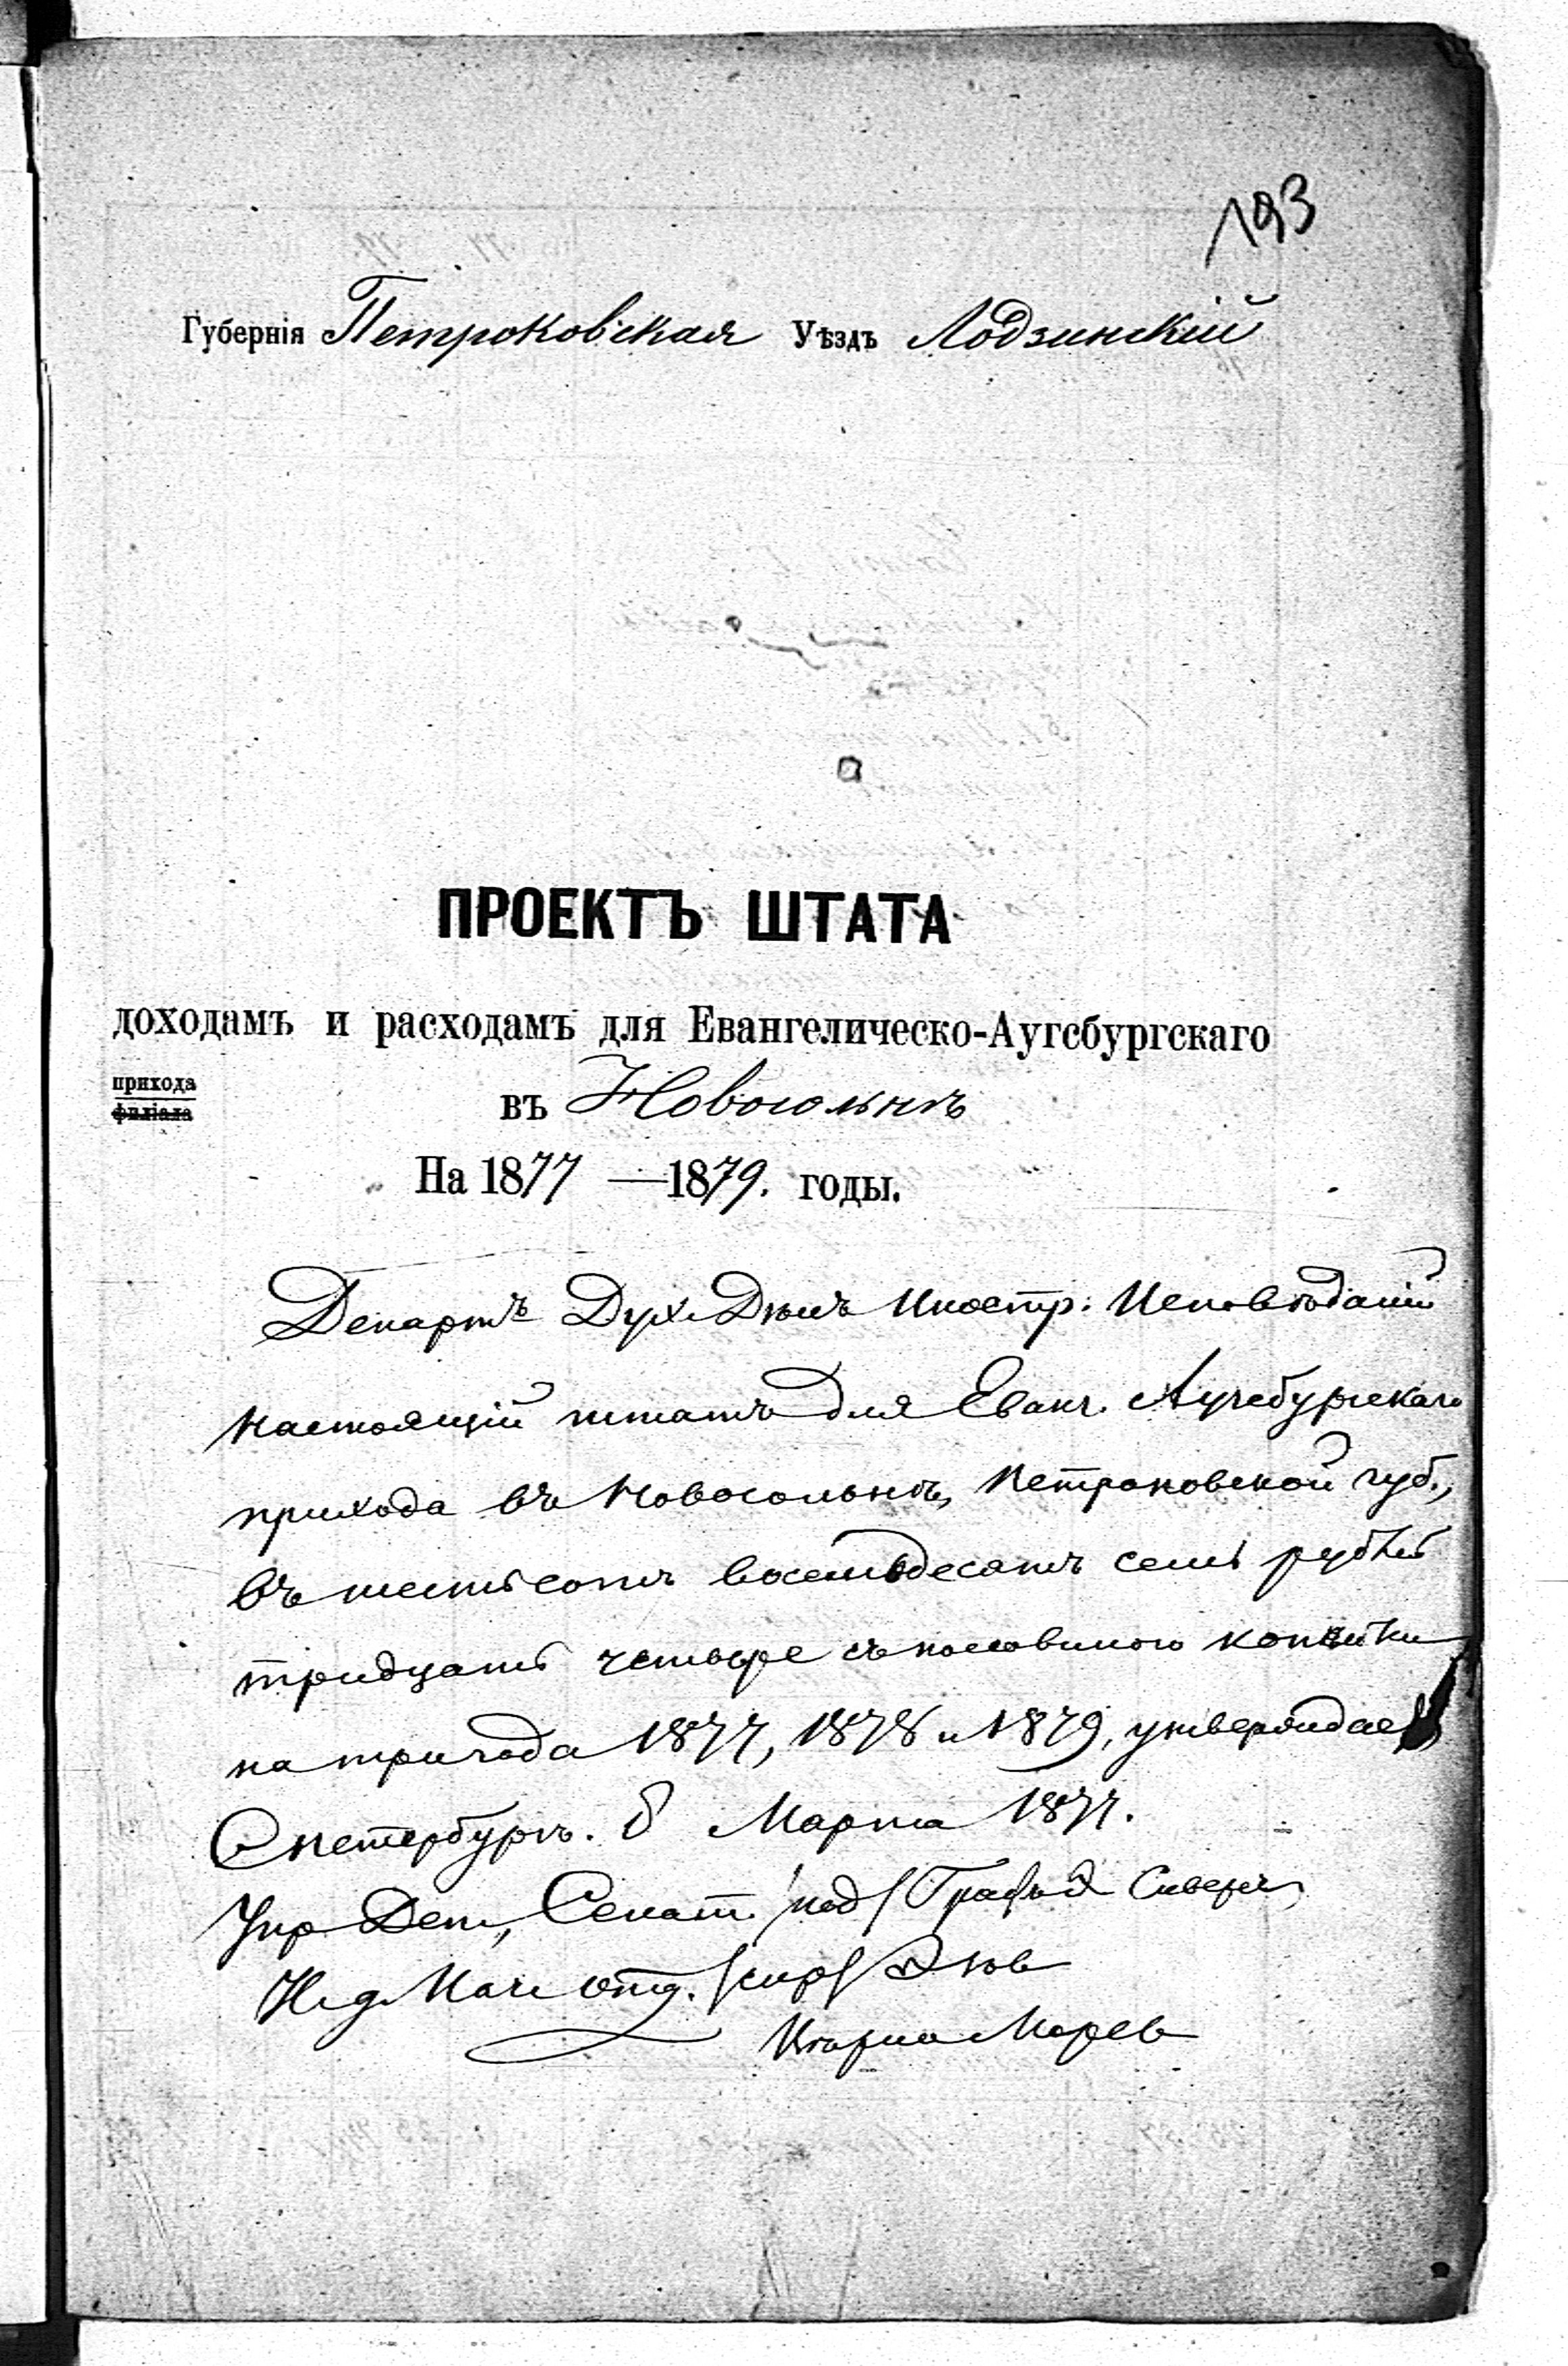 193
Губернія Петроковская Уѣздъ Лодзинскій
ПРОЕКТЪ ШТАТА
доходамъ и расходамъ для Евангелическо-Аугсбургскаго
прихода
филіала
въ Новосольнѣ
На 1877 — 1879. годы.
Департъ Дух. Дѣлъ Иностр: Исповѣданій
настоящій штатъ для Еванг. Аугсбургскаго
прихода въ Новосольнѣ, Петроковской губ.,
въ шестьсотъ восемьдесятъ семь рублей
тридцать четыре съ половиною копѣйки
на три года 1877, 1878 и 1879, утверждаетъ
СПетербургъ. 8 Марта 1877.
Упр Деп, Сенат. /под/ Графъ Э Сиверсъ
И. д. Нач. Отд. /скр/